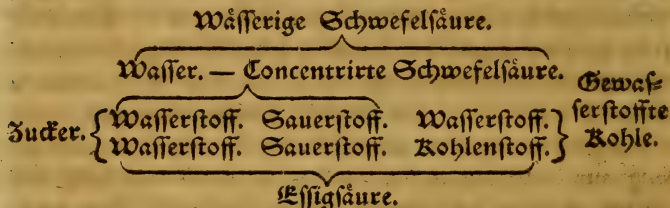 Wåſſerige Schwefelſåure.
Waſſer. — Concentrirte Schwefelſåure.
Zucker. { Waſſerſtoff. Sauerſtoff. Waſſerſtoff. } Gewaſ⸗
Waſſerſtoff. Sauerſtoff. Kohlenſtoff. ſerſtoffte
Kohle.
Eſſigſåure.